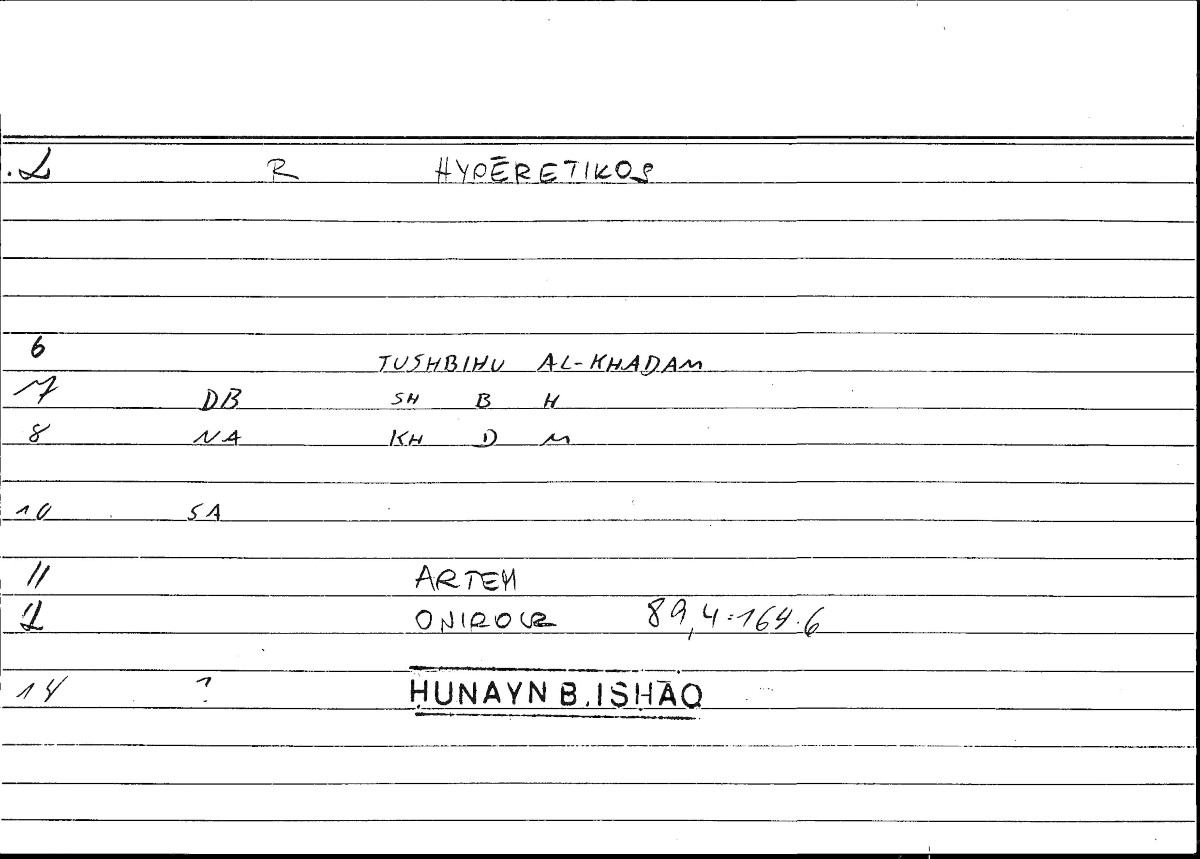 .2 R HYPĒRETIKOS
6 TUSHBIHU AL-KHADAM
7 DB SH B H
8 NA KH D M
10 SA
11 ARTEM
ONIROCR 89,4=164.6
14 ? ḤUNAYN B. ISḤĀQ